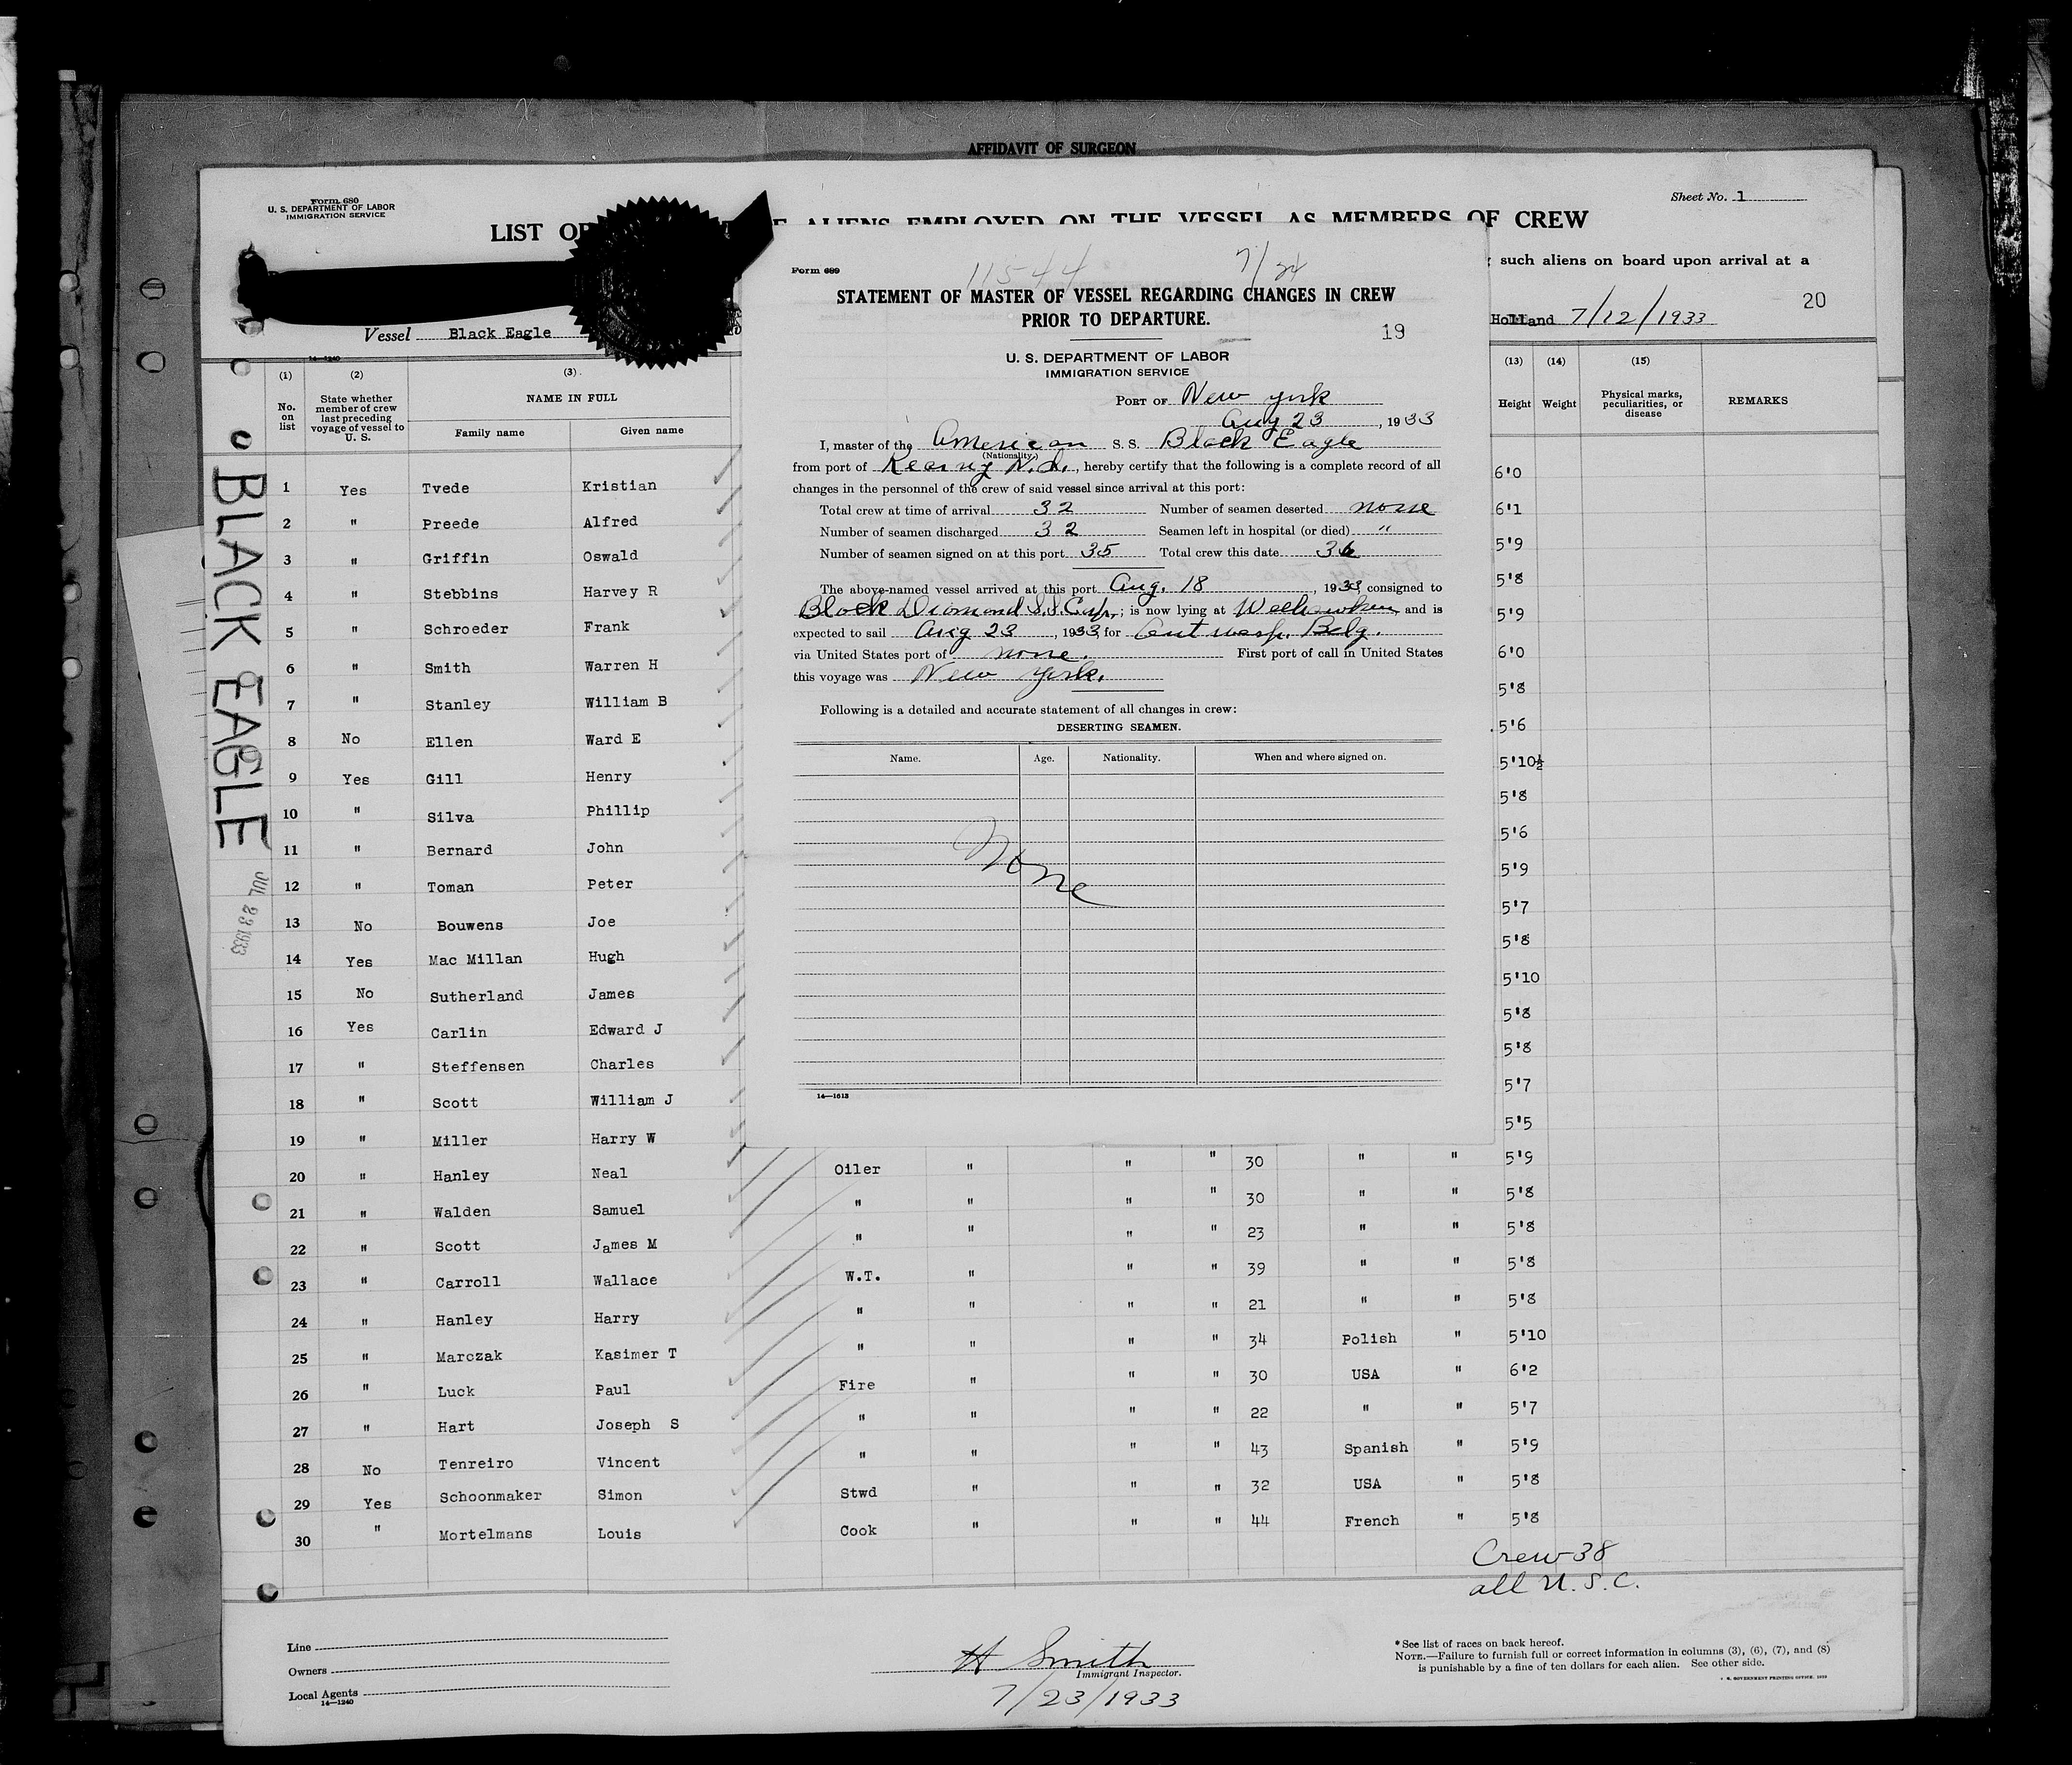 AFFIDAVIT OF SURGEON
Form 680
U. S. DEPARTMENT OF LABOR
IMMIGRATION SERVICE
Sheet No. 1
LIST OF ALIENS EMPLOYED ON THE VESSEL AS MEMBERS OF CREW
such aliens on board upon arrival at a
Vessel Black Eagle
Holland 7/12/1933
20
14—1240
(1) (2) (3) (13) (14) (15)
No. on list
State whether member of crew last preceding voyage of vessel to U. S.
NAME IN FULL
Family name Given name
Height Weight
Physical marks, peculiarities, or disease
REMARKS
BLACK EAGLE
JUL 23 1933
1 Yes Tvede Kristian 6'0
2 " Preede Alfred 6'1
3 " Griffin Oswald 5'9
4 " Stebbins Harvey R 5'8
5 " Schroeder Frank 5'9
6 " Smith Warren H 6'0
7 " Stanley William B 5'8
8 No Ellen Ward E 5'6
9 Yes Gill Henry 5'10½
10 " Silva Phillip 5'8
11 " Bernard John 5'6
12 " Toman Peter 5'9
13 No Bouwens Joe 5'7
14 Yes Mac Millan Hugh 5'8
15 No Sutherland James 5'10
16 Yes Carlin Edward J 5'8
17 " Steffensen Charles 5'8
18 " Scott William J 5'7
19 " Miller Harry W 5'5
20 " Hanley Neal Oiler " " " 30 " " 5'9
21 " Walden Samuel " " " " 30 " " 5'8
22 " Scott James M " " " " 23 " " 5'8
23 " Carroll Wallace W.T. " " " 39 " " 5'8
24 " Hanley Harry " " " " 21 " " 5'8
25 " Marczak Kasimer T " " " " 34 Polish " 5'10
26 " Luck Paul Fire " " " 30 USA " 6'2
27 " Hart Joseph S " " " " 22 " " 5'7
28 No Tenreiro Vincent " " " " 43 Spanish " 5'9
29 Yes Schoonmaker Simon Stwd " " " 32 USA " 5'8
30 " Mortelmans Louis Cook " " " 44 French " 5'8
Crew 38
all U.S.C.
Line
Owners
Local Agents
14—1240
H Smith
Immigrant Inspector.
7/23/1933
* See list of races on back hereof.
NOTE.—Failure to furnish full or correct information in columns (3), (6), (7), and (8)
is punishable by a fine of ten dollars for each alien. See other side.
Form 689
11544 7/24
STATEMENT OF MASTER OF VESSEL REGARDING CHANGES IN CREW
PRIOR TO DEPARTURE.
19
U. S. DEPARTMENT OF LABOR
IMMIGRATION SERVICE
PORT OF New York
Aug 23, 1933
I, master of the American S. S. Black Eagle
(Nationality)
from port of Kearny N.J., hereby certify that the following is a complete record of all
changes in the personnel of the crew of said vessel since arrival at this port:
Total crew at time of arrival 32 Number of seamen deserted none
Number of seamen discharged 32 Seamen left in hospital (or died) "
Number of seamen signed on at this port 35 Total crew this date 36
The above-named vessel arrived at this port Aug. 18, 1933, consigned to
Black Diamond S.S. Corp.; is now lying at Weehawken and is
expected to sail Aug 23, 1933, for Antwerp. Belg.
via United States port of none. First port of call in United States
this voyage was New York.
Following is a detailed and accurate statement of all changes in crew:
DESERTING SEAMEN.
Name. Age. Nationality. When and where signed on.
None
14—1613